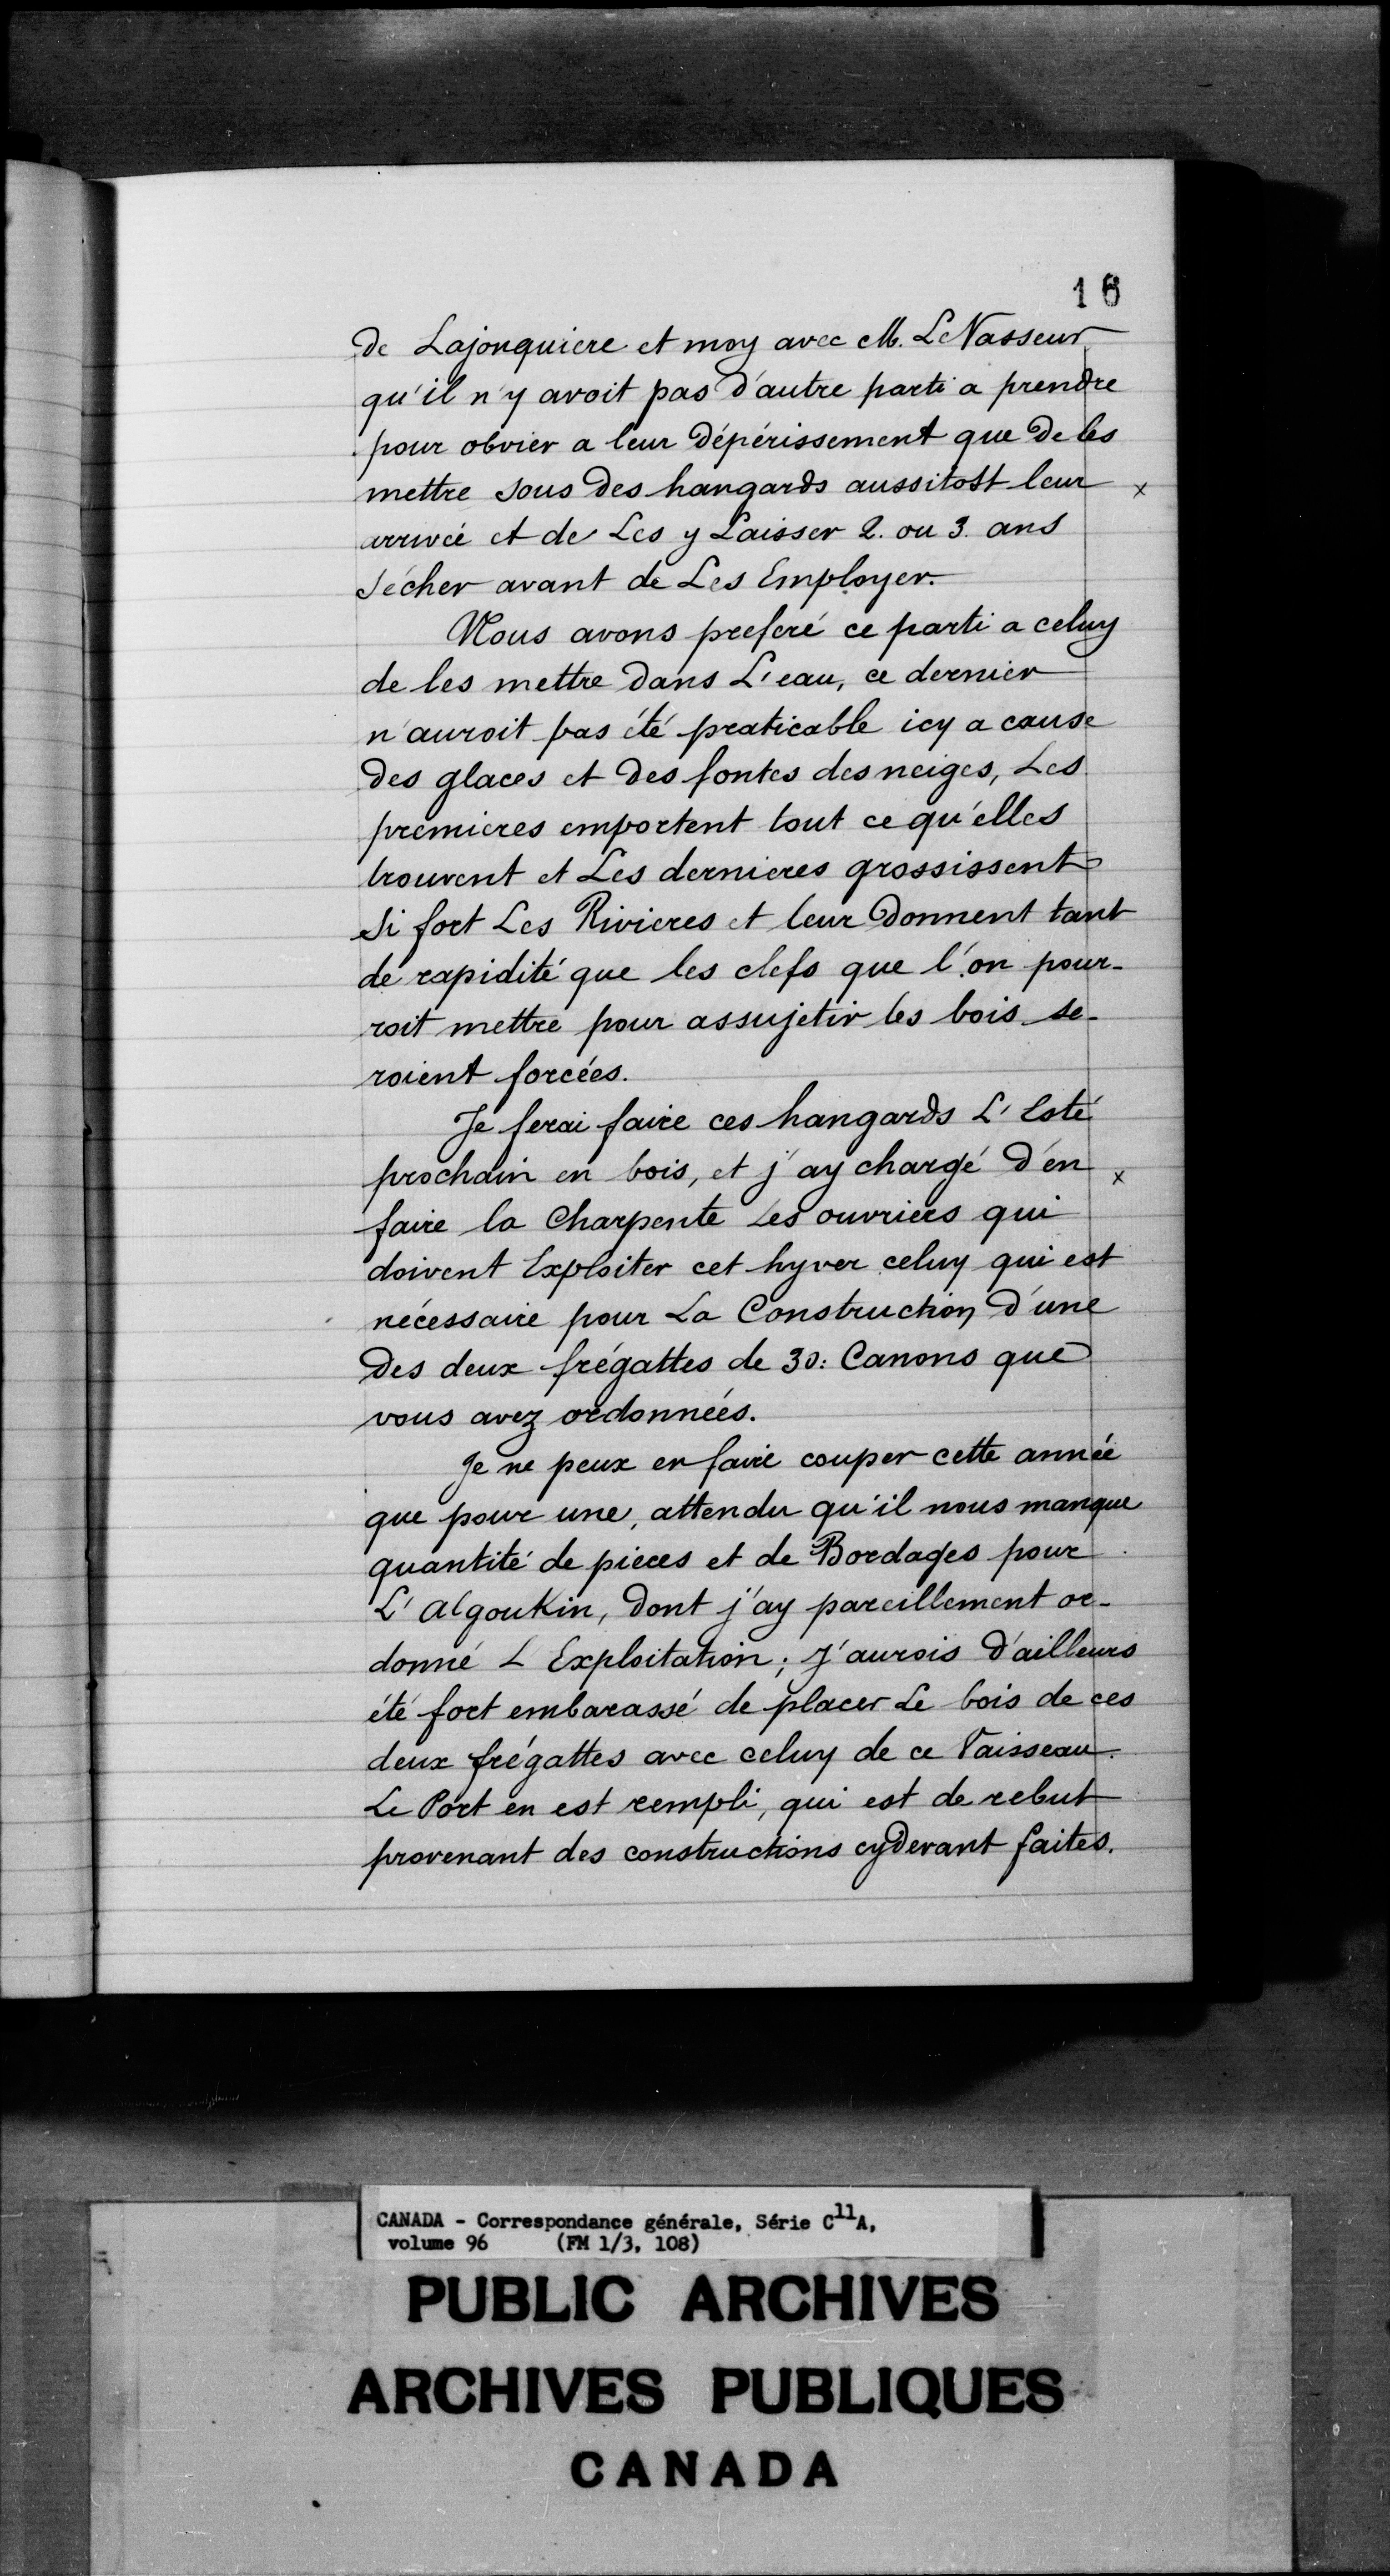 16
de Lajonquiere et moy avec M. LeVasseur
qu'il n'y avoit pas d'autre parti a prendre
pour obvier a leur dépérissement que de les
mettre sous des hangards aussitost leur x
arrivée et de Les y Laisser 2. ou 3. ans
sécher avant de Les Employer.
Nous avons preferé ce parti a celuy
de les mettre dans L'eau, ce dernier
n'auroit pas été praticable icy a cause
des glaces et des fontes des neiges, Les
premieres emportent tout ce qu'elles
trouvent et Les dernieres grossissent
si fort Les Rivieres et leur donnent tant
de rapidité que les clefs que l'on pour-
roit mettre pour assujetir les bois se-
roient forcées.
Je ferai faire ces hangards L'Esté
prochain en bois, et j'ay chargé d'en x
faire la Charpente Les ouvriers qui
doivent Exploiter cet hyver celuy qui est
nécessaire pour La Construction d'une
des deux frégattes de 30: Canons que
vous avez ordonnées.
Je ne peux en faire couper cette année
que pour une, attendu qu'il nous manque
quantité de pieces et de Bordages pour
L'Algoukin, dont j'ay pareillement or-
donné L Exploitation; j'aurois d'ailleurs
été fort embarassé de placer Le bois de ces
deux frégattes avec celuy de ce Vaisseau.
Le Port en est rempli, qui est de rebut
provenant des constructions cydevant faites.
CANADA - Correspondance générale, Série C11A,
volume 96 (FM 1/3, 108)
PUBLIC ARCHIVES
ARCHIVES PUBLIQUES
CANADA